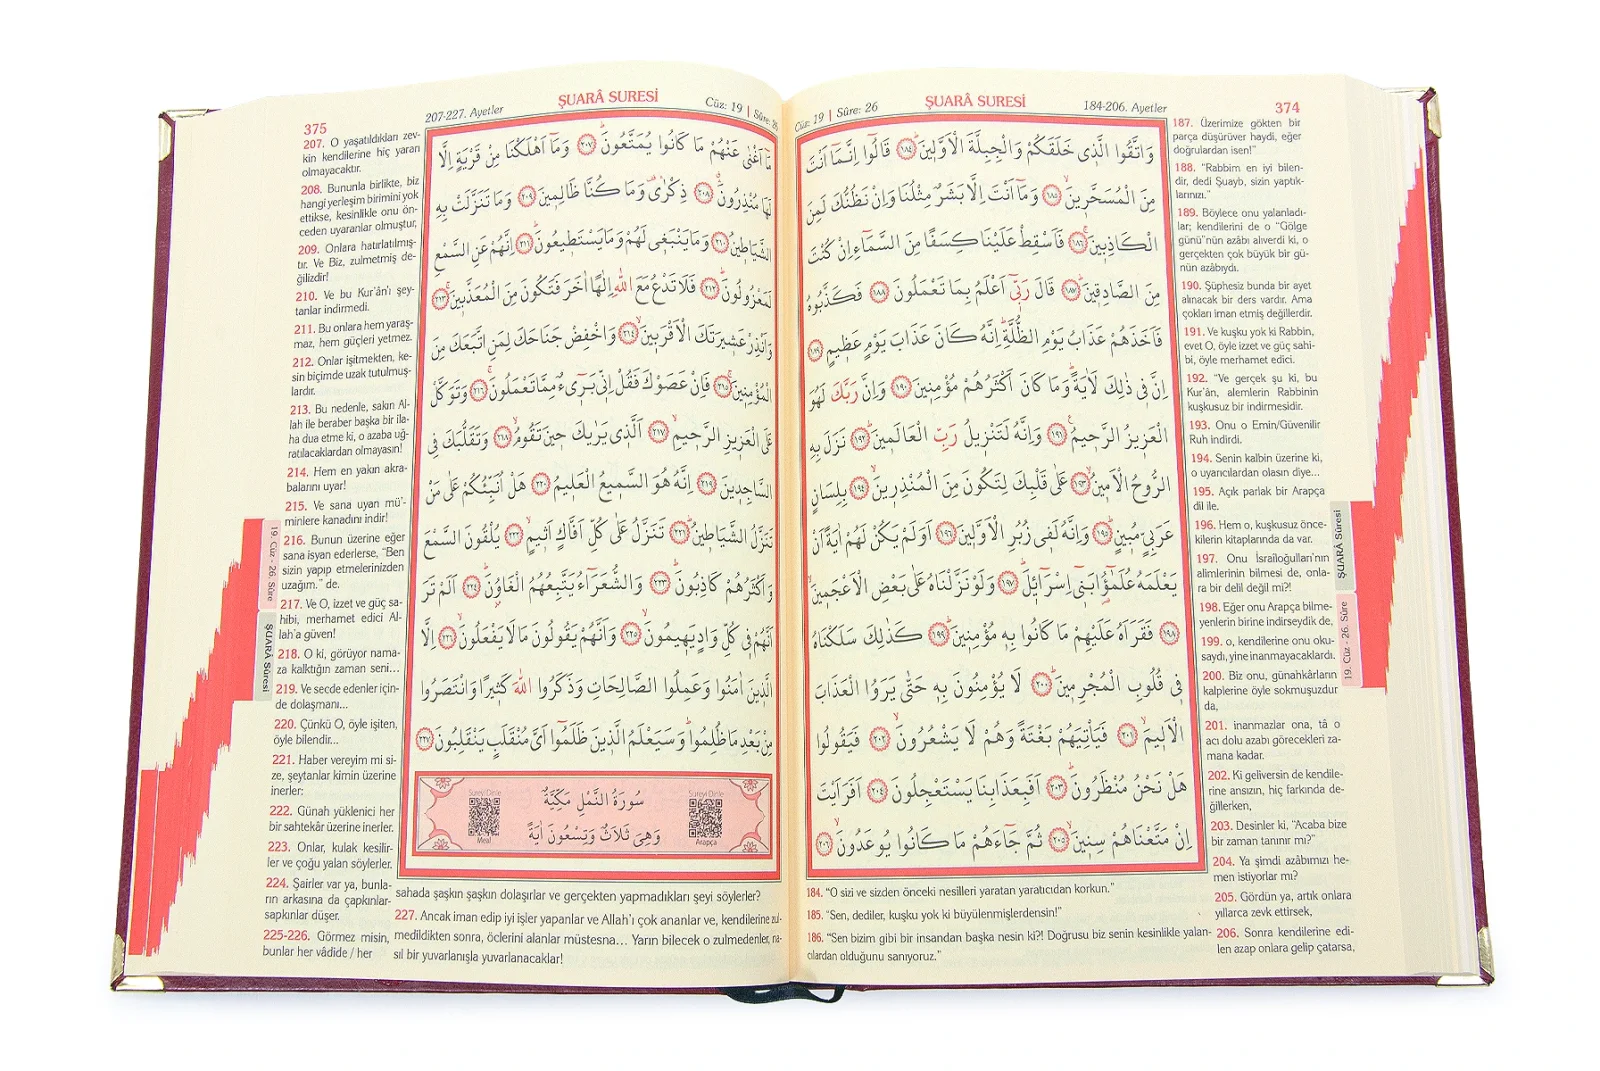 374
ŞUARÂ SURESİ
184-206. Ayetler
Cüz: 19 | Sûre: 26
وَاتَّقُوا الَّذٖى خَلَقَكُمْ وَالْجِبِلَّةَ الْاَوَّلٖينَ ﴿١٨٤﴾ قَالُٓوا اِنَّمَٓا اَنْتَ
مِنَ الْمُسَحَّرٖينَ ﴿١٨٥﴾ وَمَٓا اَنْتَ اِلَّا بَشَرٌ مِثْلُنَا وَاِنْ نَظُنُّكَ لَمِنَ
الْكَاذِبٖينَ ﴿١٨٦﴾ فَاَسْقِطْ عَلَيْنَا كِسَفًا مِنَ السَّمَٓاءِ اِنْ كُنْتَ
مِنَ الصَّادِقٖينَ ﴿١٨٧﴾ قَالَ رَبّٖٓى اَعْلَمُ بِمَا تَعْمَلُونَ ﴿١٨٨﴾ فَكَذَّبُوهُ
فَاَخَذَهُمْ عَذَابُ يَوْمِ الظُّلَّةِ اِنَّهُ كَانَ عَذَابَ يَوْمٍ عَظٖيمٍ ﴿١٨٩﴾
اِنَّ فٖى ذٰلِكَ لَاٰيَةً وَمَا كَانَ اَكْثَرُهُمْ مُؤْمِنٖينَ ﴿١٩٠﴾ وَاِنَّ رَبَّكَ لَهُوَ
الْعَزٖيزُ الرَّحٖيمُ ﴿١٩١﴾ وَاِنَّهُ لَتَنْزٖيلُ رَبِّ الْعَالَمٖينَ ﴿١٩٢﴾ نَزَلَ بِهِ
الرُّوحُ الْاَمٖينُ ﴿١٩٣﴾ عَلٰى قَلْبِكَ لِتَكُونَ مِنَ الْمُنْذِرٖينَ ﴿١٩٤﴾ بِلِسَانٍ
عَرَبِىٍّ مُبٖينٍ ﴿١٩٥﴾ وَاِنَّهُ لَفٖى زُبُرِ الْاَوَّلٖينَ ﴿١٩٦﴾ اَوَلَمْ يَكُنْ لَهُمْ اٰيَةً اَنْ
يَعْلَمَهُ عُلَمٰٓؤُا بَنٖٓى اِسْرَٓائٖلَ ﴿١٩٧﴾ وَلَوْ نَزَّلْنَاهُ عَلٰى بَعْضِ الْاَعْجَمٖينَ
﴿١٩٨﴾ فَقَرَاَهُ عَلَيْهِمْ مَا كَانُوا بِهٖ مُؤْمِنٖينَ ﴿١٩٩﴾ كَذٰلِكَ سَلَكْنَاهُ
فٖى قُلُوبِ الْمُجْرِمٖينَ ﴿٢٠٠﴾ لَا يُؤْمِنُونَ بِهٖ حَتّٰى يَرَوُا الْعَذَابَ
الْاَلٖيمَ ﴿٢٠١﴾ فَيَاْتِيَهُمْ بَغْتَةً وَهُمْ لَا يَشْعُرُونَ ﴿٢٠٢﴾ فَيَقُولُوا
هَلْ نَحْنُ مُنْظَرُونَ ﴿٢٠٣﴾ اَفَبِعَذَابِنَا يَسْتَعْجِلُونَ ﴿٢٠٤﴾ اَفَرَاَيْتَ
اِنْ مَتَّعْنَاهُمْ سِنٖينَ ﴿٢٠٥﴾ ثُمَّ جَٓاءَهُمْ مَا كَانُوا يُوعَدُونَ ﴿٢٠٦﴾
184. "O sizi ve sizden önceki nesilleri yaratan yaratıcıdan korkun."
185. "Sen, dediler, kuşku yok ki büyülenmişlerdensin!"
186. "Sen bizim gibi bir insandan başka nesin ki?! Doğrusu biz senin kesinlikle yalan-
cılardan olduğunu sanıyoruz."
187. Üzerimize gökten bir
parça düşürüver haydi, eğer
doğrulardan isen!"
188. "Rabbim en iyi bilen-
dir, dedi Şuayb, sizin yaptık-
larınızı."
189. Böylece onu yalanladı-
lar; kendilerini de o "Gölge
günü"nün azâbı alıverdi ki, o
gerçekten çok büyük bir gü-
nün azâbıydı.
190. Şüphesiz bunda bir ayet
alınacak bir ders vardır. Ama
çokları iman etmiş değillerdir.
191. Ve kuşku yok ki Rabbin,
evet O, öyle izzet ve güç sahi-
bi, öyle merhamet edici.
192. "Ve gerçek şu ki, bu
Kur'ân, alemlerin Rabbinin
kuşkusuz bir indirmesidir.
193. Onu o Emin/Güvenilir
Ruh indirdi.
194. Senin kalbin üzerine ki,
o uyarıcılardan olasın diye...
195. Açık parlak bir Arapça
dil ile.
196. Hem o, kuşkusuz önce-
kilerin kitaplarında da var.
197. Onu İsrailoğulları'nın
alimlerinin bilmesi de, onla-
ra bir delil değil mi?!
198. Eğer onu Arapça bilme-
yenlerin birine indirseydik de,
199. o, kendilerine onu oku-
saydı, yine inanmayacaklardı.
200. Biz onu, günahkârların
kalplerine öyle sokmuşuzdur
da,
201. inanmazlar ona, tâ o
acı dolu azabı görecekleri za-
mana kadar.
202. Ki geliversin de kendile-
rine ansızın, hiç farkında de-
ğillerken,
203. Desinler ki, "Acaba bize
bir zaman tanınır mı?"
204. Ya şimdi azâbımızı he-
men istiyorlar mı?
205. Gördün ya, artık onlara
yıllarca zevk ettirsek,
206. Sonra kendilerine edi-
len azap onlara gelip çatarsa,
ŞUARÂ Sûresi
19. Cüz - 26. Sûre
375
207-227. Ayetler
ŞUARÂ SURESİ
Cüz: 19 | Sûre: 26
مَٓا اَغْنٰى عَنْهُمْ مَا كَانُوا يُمَتَّعُونَ ﴿٢٠٧﴾ وَمَٓا اَهْلَكْنَا مِنْ قَرْيَةٍ اِلَّا
لَهَا مُنْذِرُونَ ﴿٢٠٨﴾ ذِكْرٰى وَمَا كُنَّا ظَالِمٖينَ ﴿٢٠٩﴾ وَمَا تَنَزَّلَتْ بِهِ
الشَّيَاطٖينُ ﴿٢١٠﴾ وَمَا يَنْبَغٖى لَهُمْ وَمَا يَسْتَطٖيعُونَ ﴿٢١١﴾ اِنَّهُمْ عَنِ السَّمْعِ
لَمَعْزُولُونَ ﴿٢١٢﴾ فَلَا تَدْعُ مَعَ اللّٰهِ اِلٰهًا اٰخَرَ فَتَكُونَ مِنَ الْمُعَذَّبٖينَ ﴿٢١٣﴾
وَاَنْذِرْ عَشٖيرَتَكَ الْاَقْرَبٖينَ ﴿٢١٤﴾ وَاخْفِضْ جَنَاحَكَ لِمَنِ اتَّبَعَكَ مِنَ
الْمُؤْمِنٖينَ ﴿٢١٥﴾ فَاِنْ عَصَوْكَ فَقُلْ اِنّٖى بَرٖٓىءٌ مِمَّا تَعْمَلُونَ ﴿٢١٦﴾ وَتَوَكَّلْ
عَلَى الْعَزٖيزِ الرَّحٖيمِ ﴿٢١٧﴾ اَلَّذٖى يَرٰيكَ حٖينَ تَقُومُ ﴿٢١٨﴾ وَتَقَلُّبَكَ فِى
السَّاجِدٖينَ ﴿٢١٩﴾ اِنَّهُ هُوَ السَّمٖيعُ الْعَلٖيمُ ﴿٢٢٠﴾ هَلْ اُنَبِّئُكُمْ عَلٰى مَنْ
تَنَزَّلُ الشَّيَاطٖينُ ﴿٢٢١﴾ تَنَزَّلُ عَلٰى كُلِّ اَفَّاكٍ اَثٖيمٍ ﴿٢٢٢﴾ يُلْقُونَ السَّمْعَ
وَاَكْثَرُهُمْ كَاذِبُونَ ﴿٢٢٣﴾ وَالشُّعَرَٓاءُ يَتَّبِعُهُمُ الْغَاوُنَ ﴿٢٢٤﴾ اَلَمْ تَرَ
اَنَّهُمْ فٖى كُلِّ وَادٍ يَهٖيمُونَ ﴿٢٢٥﴾ وَاَنَّهُمْ يَقُولُونَ مَا لَا يَفْعَلُونَ ﴿٢٢٦﴾ اِلَّا
الَّذٖينَ اٰمَنُوا وَعَمِلُوا الصَّالِحَاتِ وَذَكَرُوا اللّٰهَ كَثٖيرًا وَانْتَصَرُوا
مِنْ بَعْدِ مَا ظُلِمُوا وَسَيَعْلَمُ الَّذٖينَ ظَلَمُٓوا اَىَّ مُنْقَلَبٍ يَنْقَلِبُونَ ﴿٢٢٧﴾
سُورَةُ النَّمْلِ مَكِّيَّةٌ
وَهِىَ ثَلَاثٌ وَتِسْعُونَ اٰيَةً
Sureyi Dinle
Meal
Sureyi Dinle
Arapça
207. O yaşatıldıkları zev-
kin kendilerine hiç yararı
olmayacaktır.
208. Bununla birlikte, biz
hangi yerleşim birimini yok
ettikse, kesinlikle onu ön-
ceden uyaranlar olmuştur,
209. Onlara hatırlatılmış-
tır. Ve Biz, zulmetmiş de-
ğilizdir!
210. Ve bu Kur'ân'ı şey-
tanlar indirmedi.
211. Bu onlara hem yaraş-
maz, hem güçleri yetmez.
212. Onlar işitmekten, ke-
sin biçimde uzak tutulmuş-
lardır.
213. Bu nedenle, sakın Al-
lah ile beraber başka bir ila-
ha dua etme ki, o azaba uğ-
ratılacaklardan olmayasın!
214. Hem en yakın akra-
balarını uyar!
215. Ve sana uyan mü'-
minlere kanadını indir!
216. Bunun üzerine eğer
sana isyan ederlerse, "Ben
sizin yapıp etmelerinizden
uzağım." de.
217. Ve O, izzet ve güç sa-
hibi, merhamet edici Al-
lah'a güven!
218. O ki, görüyor nama-
za kalktığın zaman seni...
219. Ve secde edenler için-
de dolaşmanı...
220. Çünkü O, öyle işiten,
öyle bilendir...
221. Haber vereyim mi si-
ze, şeytanlar kimin üzerine
inerler:
222. Günah yüklenici her
bir sahtekâr üzerine inerler.
223. Onlar, kulak kesilir-
ler ve çoğu yalan söylerler.
224. Şairler var ya, bunla-
rın arkasına da çapkınlar-
sapkınlar düşer.
225-226. Görmez misin,
bunlar her vâdide / her
sahada şaşkın şaşkın dolaşırlar ve gerçekten yapmadıkları şeyi söylerler?
227. Ancak iman edip iyi işler yapanlar ve Allah'ı çok ananlar ve, kendilerine zul-
medildikten sonra, öclerini alanlar müstesna... Yarın bilecek o zulmedenler, na-
sıl bir yuvarlanışla yuvarlanacaklar!
19. Cüz - 26. Sûre
ŞUARÂ Sûresi